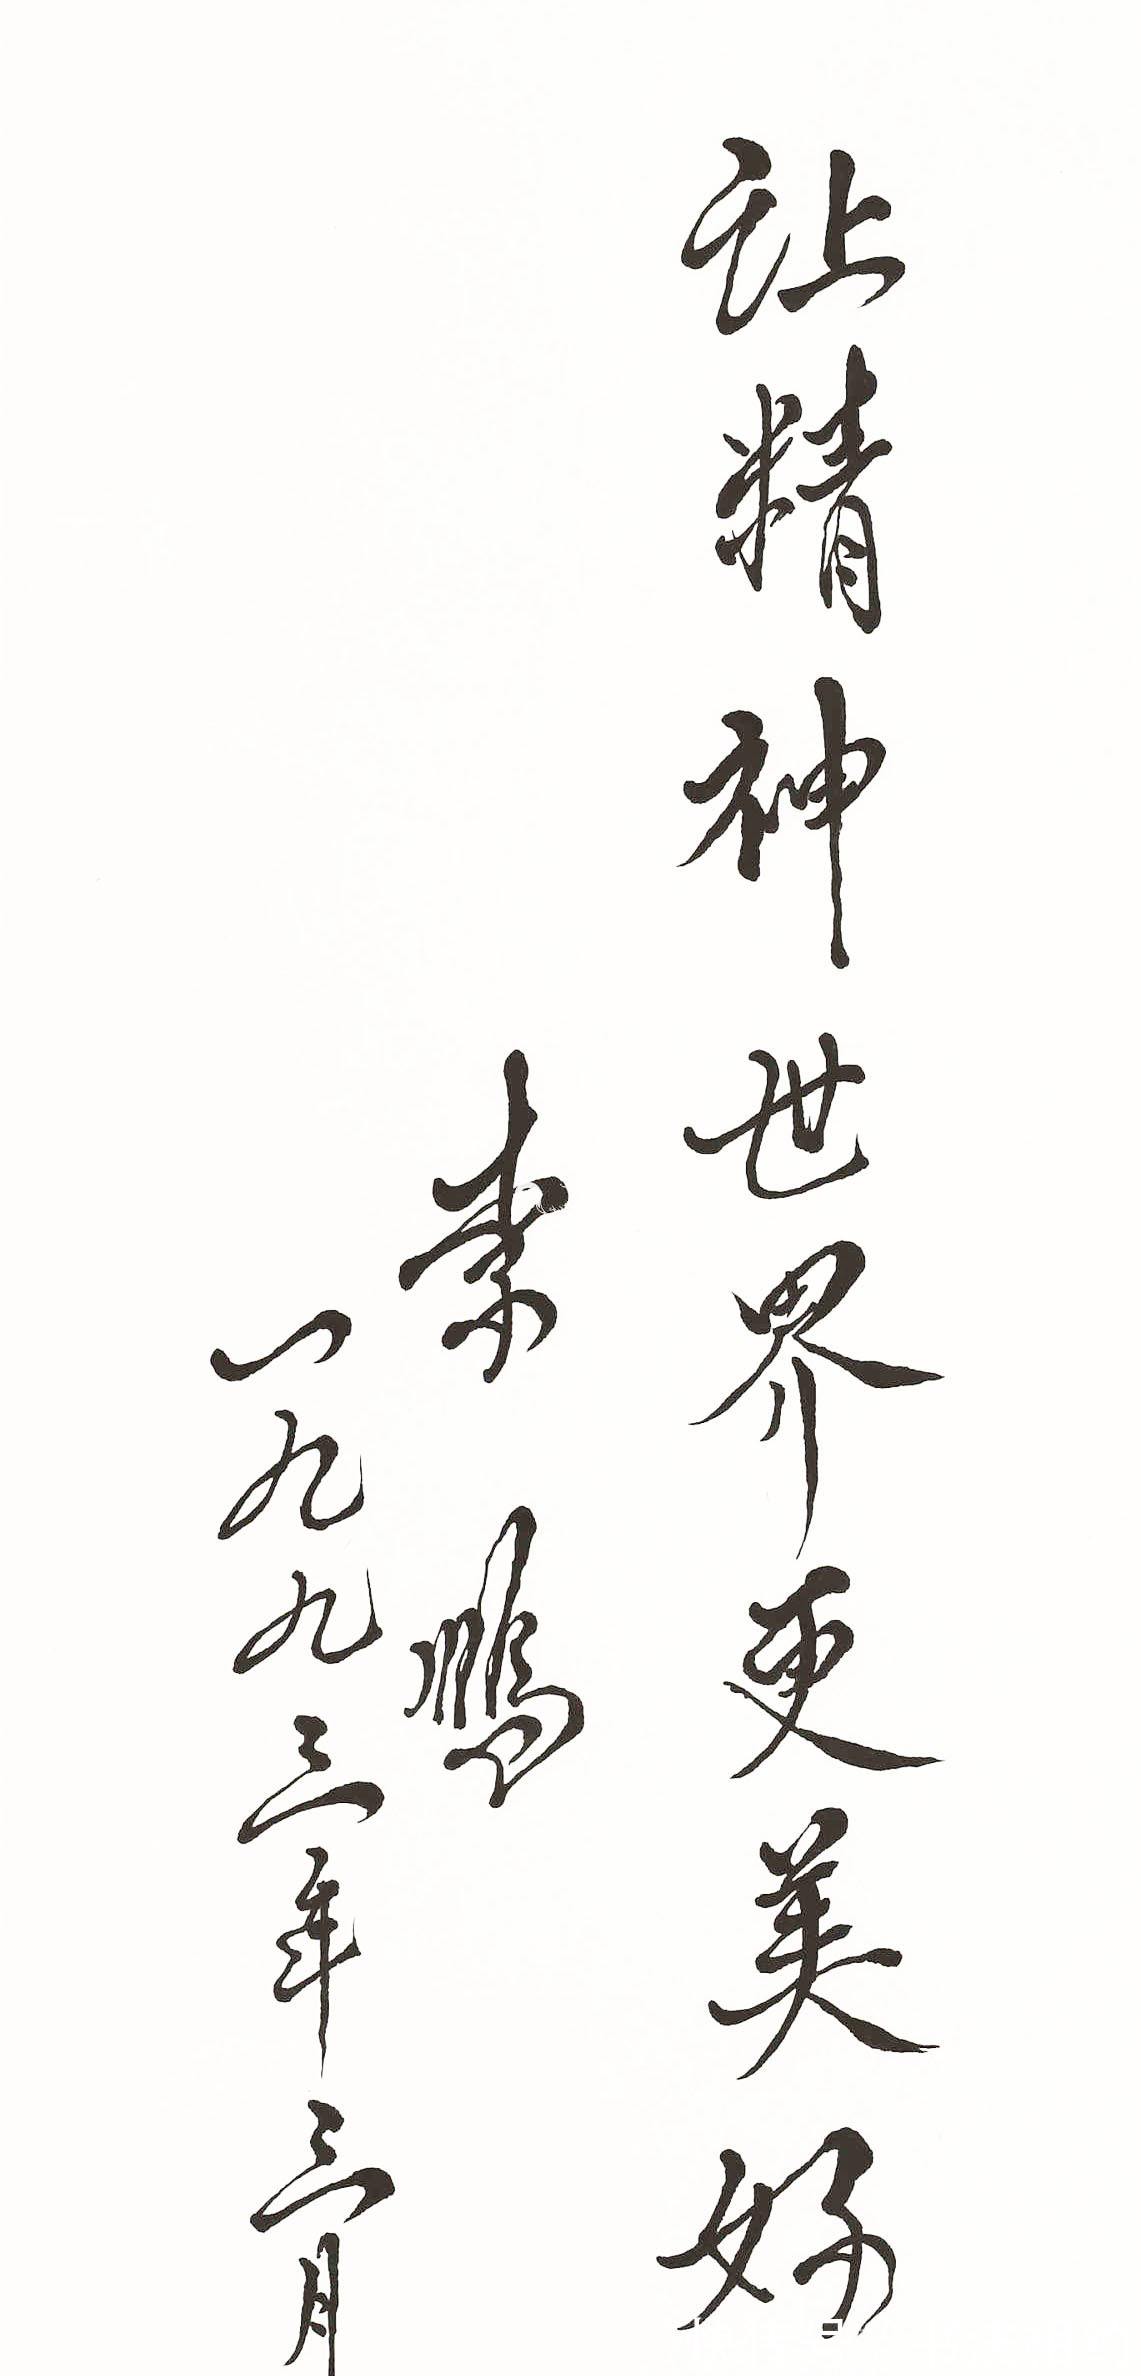 让精神世界更美好
李鹏
一九九三年三月